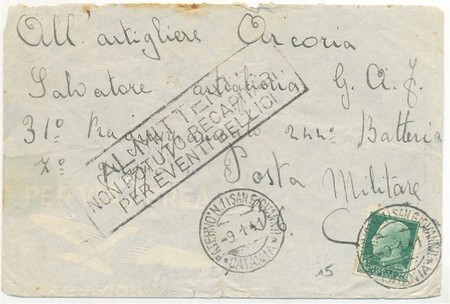 All' artigliere Arcoria
Salvatore artiglieria G. A. F.
31° Raggruppamento 244ª Batteria
7°
Posta Militare
AL MITTENTE
NON POTUTO RECAPITARE
PER EVENTI BELLICI
PATERNO' N.1 (SAN GIOVANNI)
-9.1.41
CATANIA
15